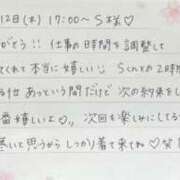 12日(木) 17:00〜 S様♡
がとう!! 仕事の時間を調整して
てくれて本当に嬉しい Sくんとの2時
る位 あっという間だけど 次の約束をし
番嬉しいよ♡。 次回も楽しみにしてる
寒いて思うから しっかり着て来てね♡笑